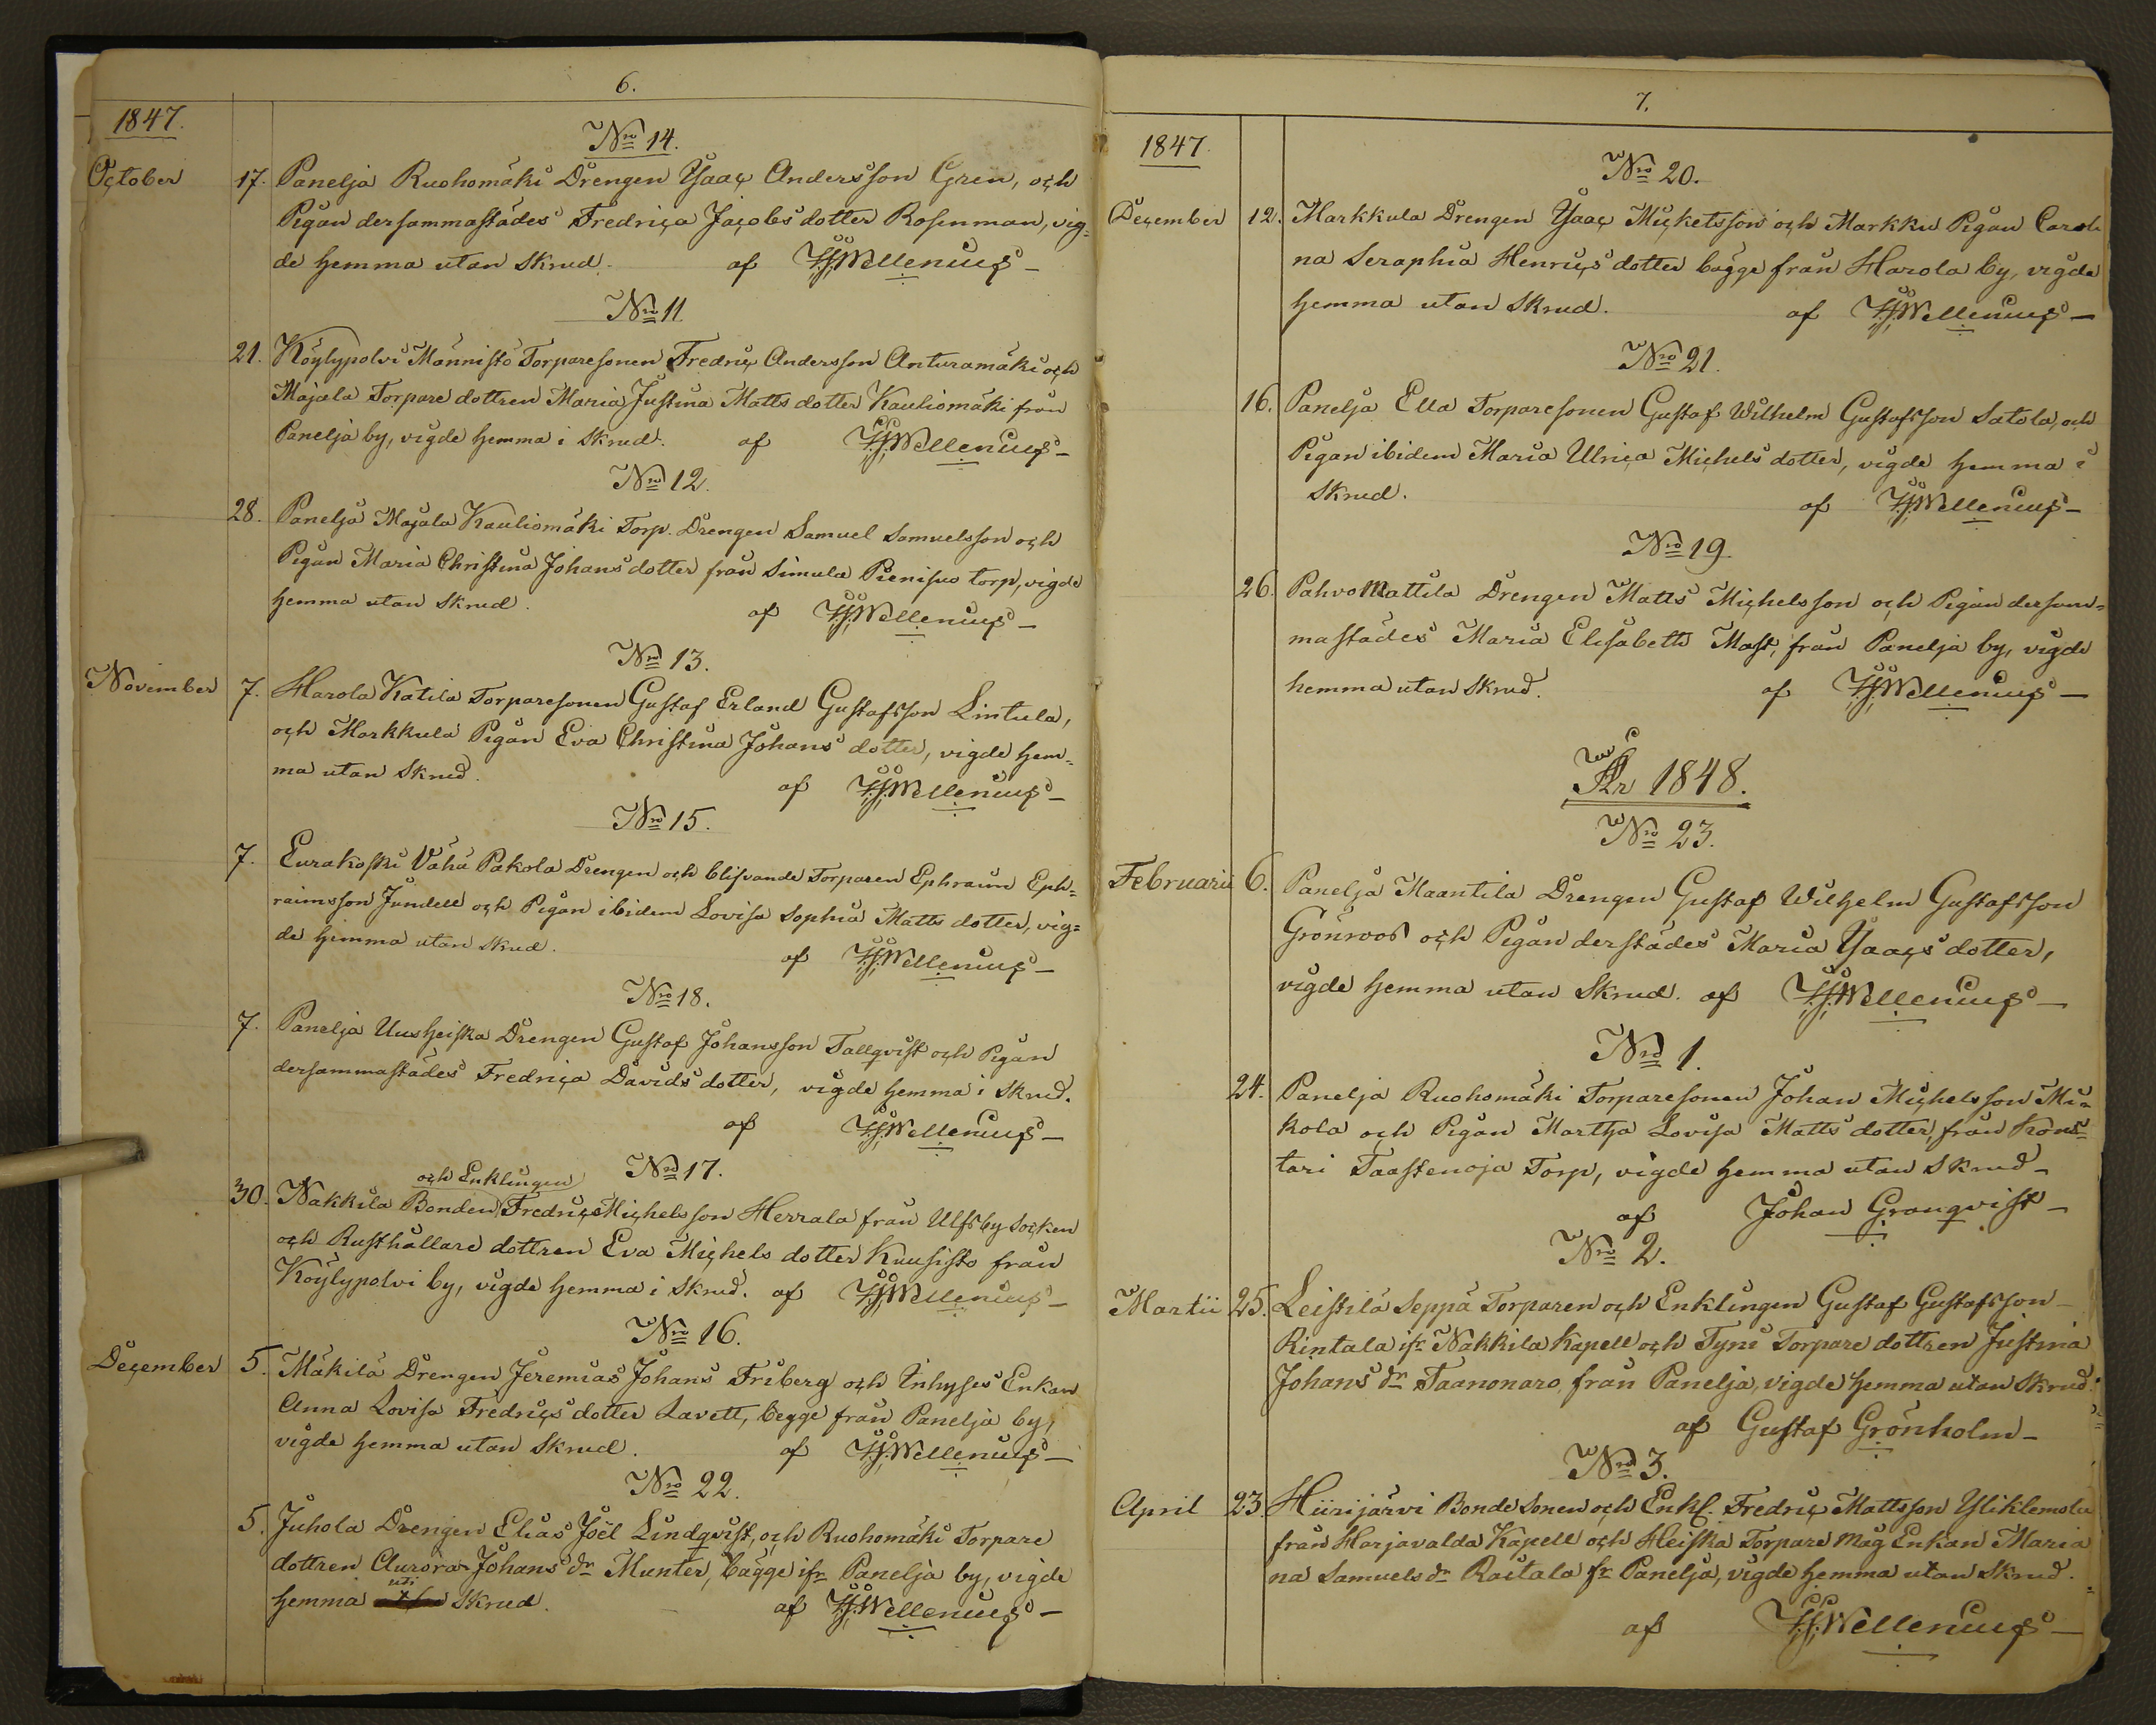 6.
1847.
Nro 14.
October 17. Panelja Ruohomäki Drengen Ysaac Andersson Gren, och
Pigan dersammastädes Fredrica Jacobs dotter Rosenman, vig=
de hemma utan Skrud. af HHWellenius
Nro 11
21. Köylypolvi Männistö Torparesonen Fredric Andersson Anturamäki och
Majala Torpare dottren Maria Justina Matts dotter Kauliomäki från
Panelja by, vigde hemma i Skrud. af HHWellenius
Nro 12.
28. Panelja Majala Kauliomäki Torp. Drengen Samuel Samuelsson och
Pigan Maria Christina Johans dotter från Simula Pienisuo torp, vigde
hemma utan Skrud. af HHWellenius
Nro 13.
November 7. Harola Katila Torparesonen Gustaf Erland Gustafsson Lintula,
och Markkula Pigan Eva Christina Johans dotter, vigde hem=
ma utan Skrud. af HHWellenius
Nro 15.
7. Eurakoski Vähä Pakola Drengen och blifvande Torparen Ephraim Eph=
raimsson Jundell och Pigan ibidem Lovisa Sophia Matts dotter, vig=
de hemma utan Skrud. af HHWellenius
Nro 18.
7. Panelja Uusheiska Drengen Gustaf Johansson Tallqvist och Pigan
dersammastädes Fredrica Davids dotter, vigde hemma i Skrud.
af HHWellenius
Nro 17.
och Enklingen
30. Nakkila Bonden Fredric Michelsson Herrala från Ulfsby Socken
och Rusthållare dottren Eva Michels dotter Kuusisto från
Köylypolvi by, vigde hemma i Skrud. af HHWellenius
Nro 16.
December 5. Mäkilä Drengen Jeremias Johans Friberg och Inhyses Enkan
Anna Lovisa Fredrics dotter Lavett, begge från Panelja by,
vigde hemma utan Skrud. af HHWellenius
Nro 22.
5. Juhola Drengen Elias Joël Lindqvist, och Ruohomäki Torpare
dottren Aurora Johans dr Munter, bägge ifr Panelja by, vigde
uti
hemma Skrud. af HHWellenius
7.
1847.
Nro 20.
December 12. Markkula Drengen Ysaac Mickelsson och Markku Pigan Caroli
na Seraphia Henrics dotter bägge från Harola by, vigde
hemma utan Skrud. af HHWellenius
Nro 21.
16. Panelja Ella Torparesonen Gustaf Wilhelm Gustafsson Satola, och
Pigan ibidem Maria Ulrica Michels dotter, vigde hemma i
Skrud. af HHWellenius
Nro 19.
26. Pahvo Mattila Drengen Matts Michelsson och Pigan dersam=
mastädes Maria Elisabeth Mast, från Panelja by, vigde
hemma utan Skrud. af HHWellenius
År 1848.
Nro 23.
Februarii 6. Panelja Maantila Drengen Gustaf Wilhelm Gustafsson
Grönroos och Pigan derstädes Maria Ysaacs dotter,
vigde hemma utan Skrud. af HHWellenius
Nro 1.
24. Panelja Ruohomäki Torparesonen Johan Michelsson Mi=
kola och Pigan Martha Lovisa Matts dotter, från Köns=
tari Taastenoja Torp, vigde hemma utan Skrud
af Johan Granqvist
Nro 2.
Martii 25. Leistilä Seppä Torparen och Enklingen Gustaf Gustafsson
Rintala ifr Nakkila Kapell och Tyni Torpare dottren Justina
Johans dr Taanonaro, från Panelja, vigde hemma utan Skrud.
af Gustaf Grönholm
Nro 3.
April 23. Hiirijärvi Bonde Sonen och Enkl. Fredric Mattsson Yliklemola
från Harjavalda Kapell och Heiska Torpare måg Enkan Maria
na Samuels dr Raitala fr Panelja, vigde hemma utan Skrud.
af HHWellenius